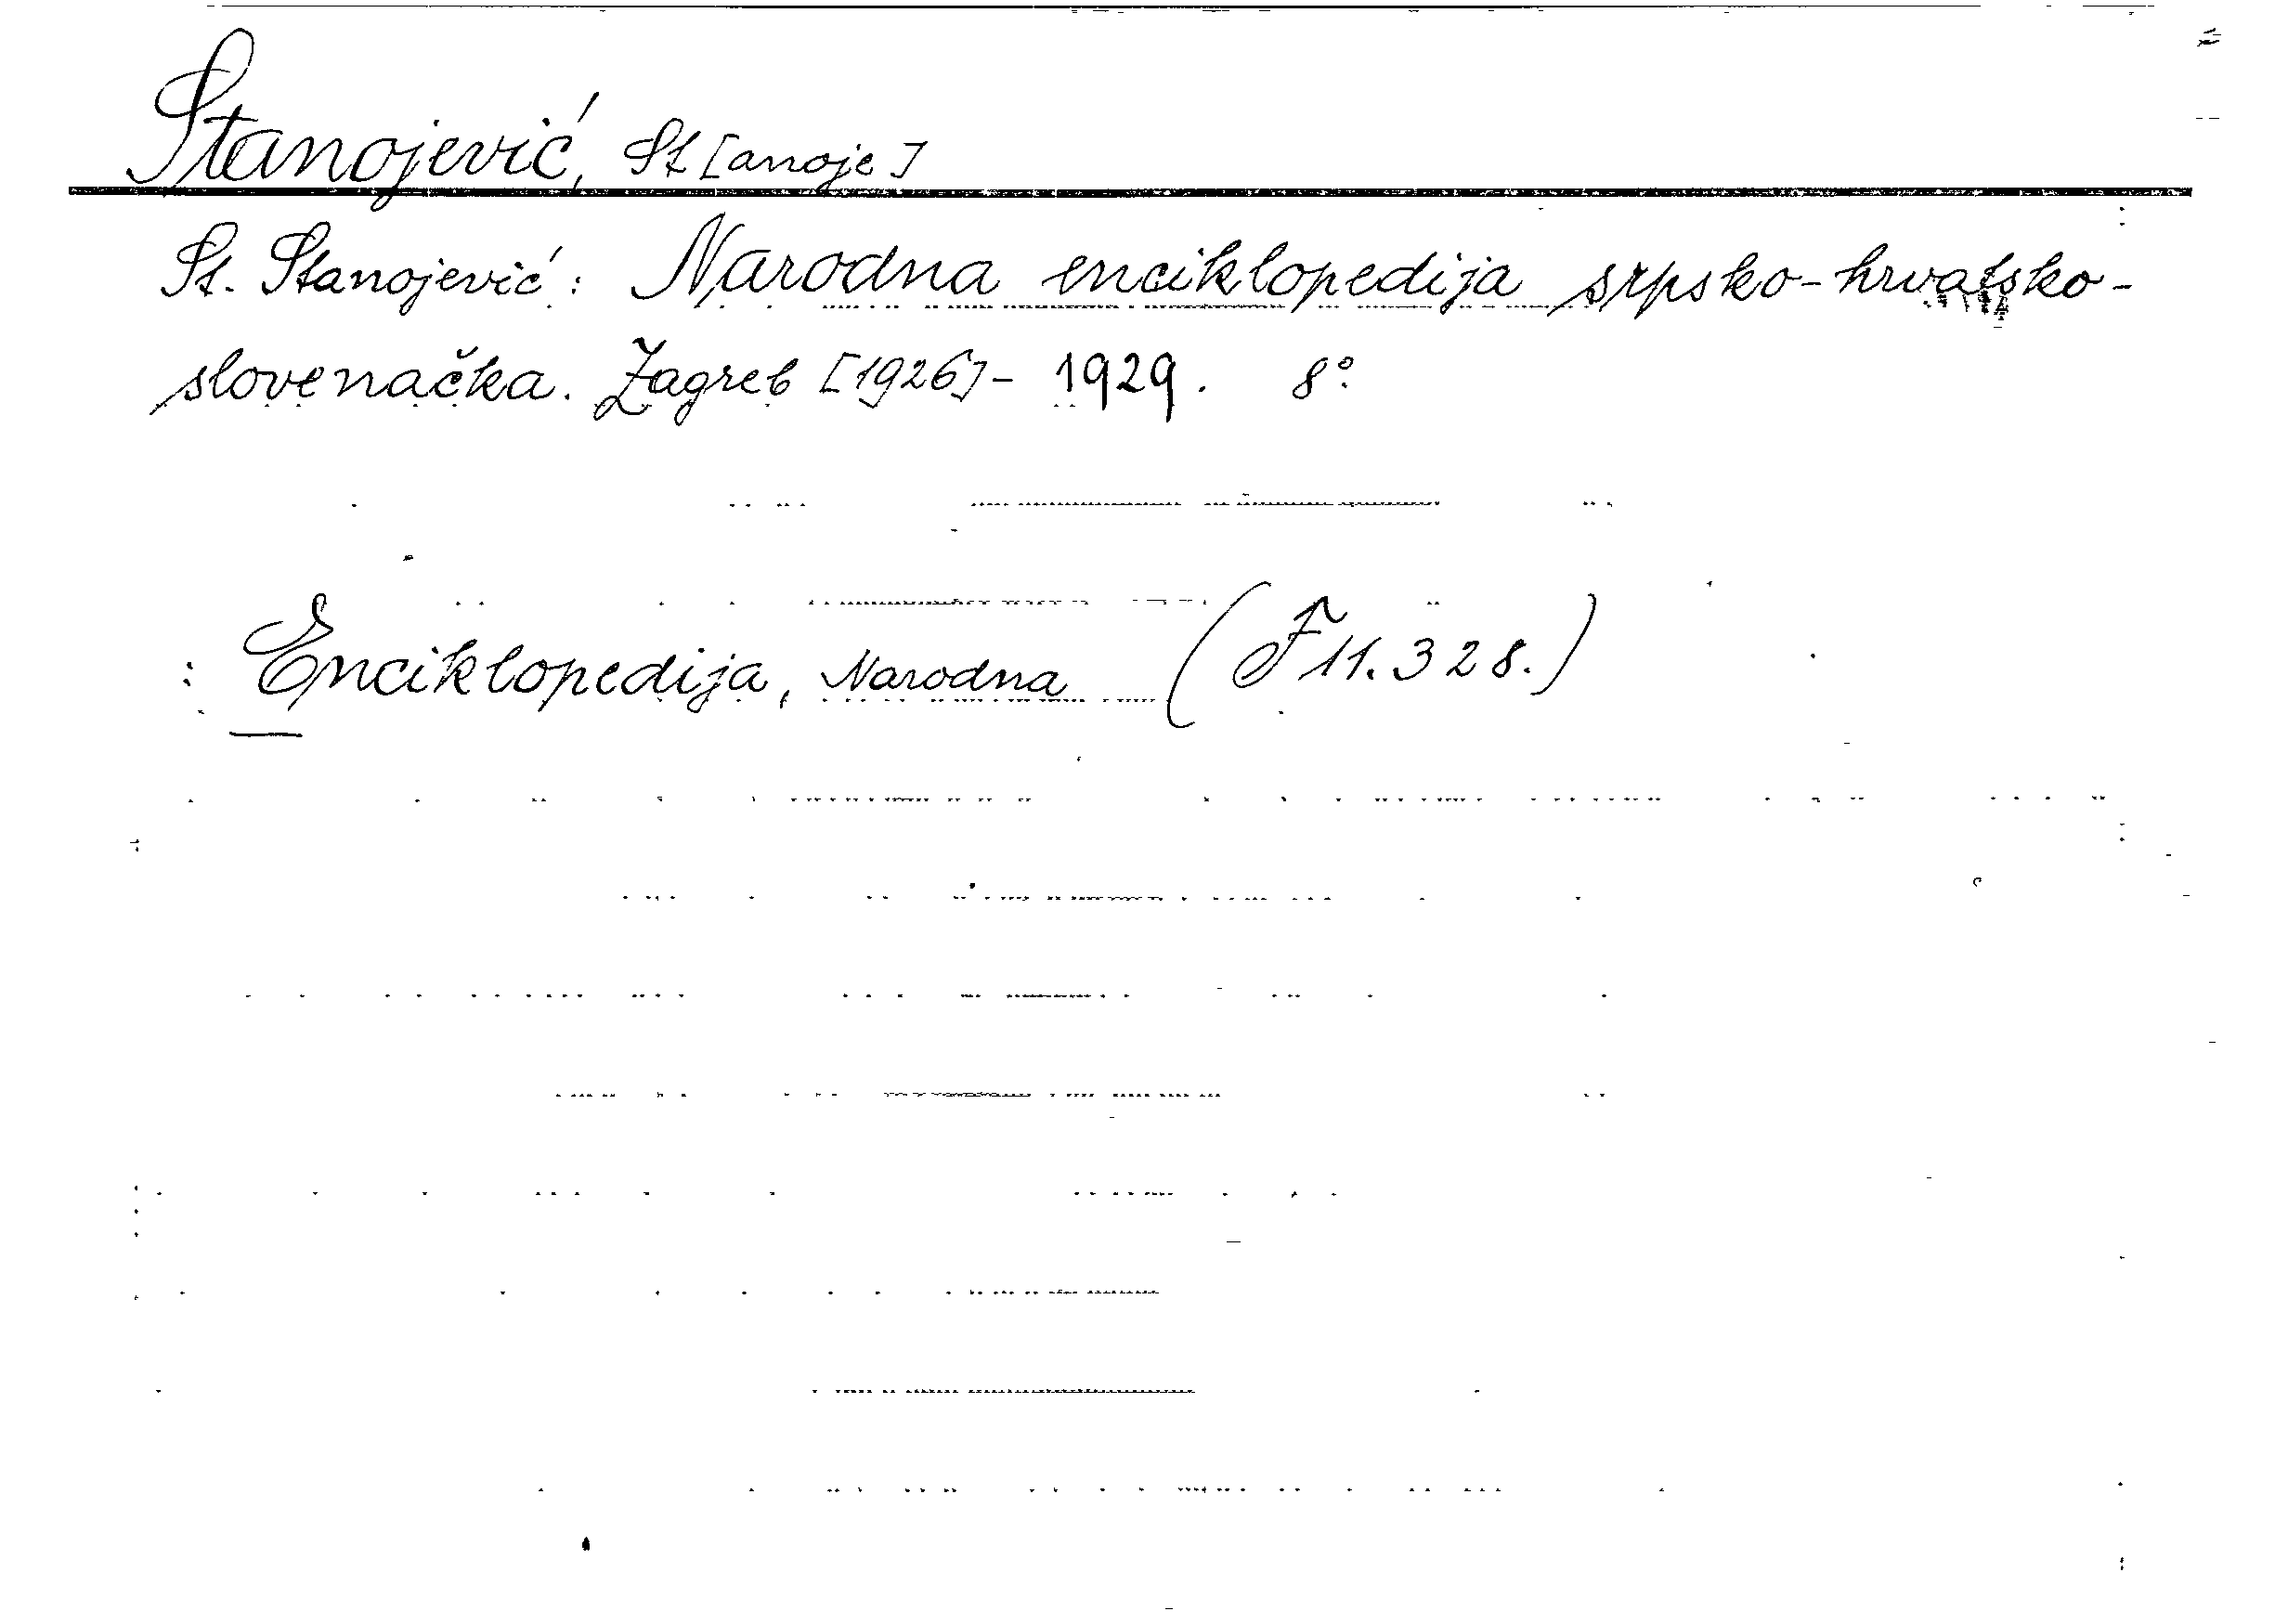 Stanojević, St[anoje]
St. Stanojević: Narodna enciklopedija srpsko-hrvatsko-
slovenačka. Zagreb [1926]- 1929. 8°
: Enciklopedija, Narodna (F 11.328.)